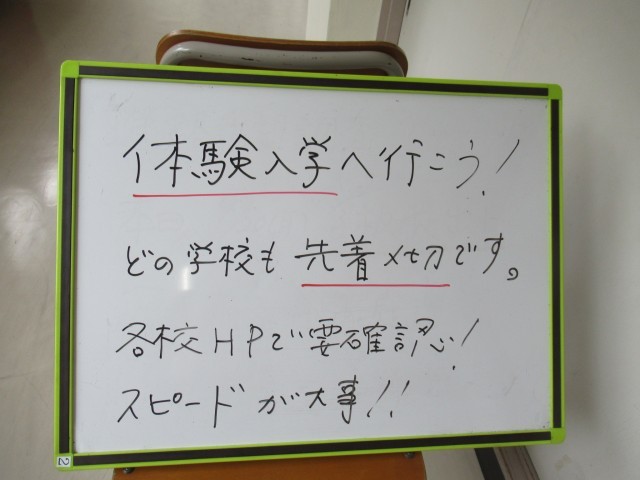 体験入学へ行こう!
どの学校も先着〆切です。
各校HPで要確認!
スピードが大事!!
2